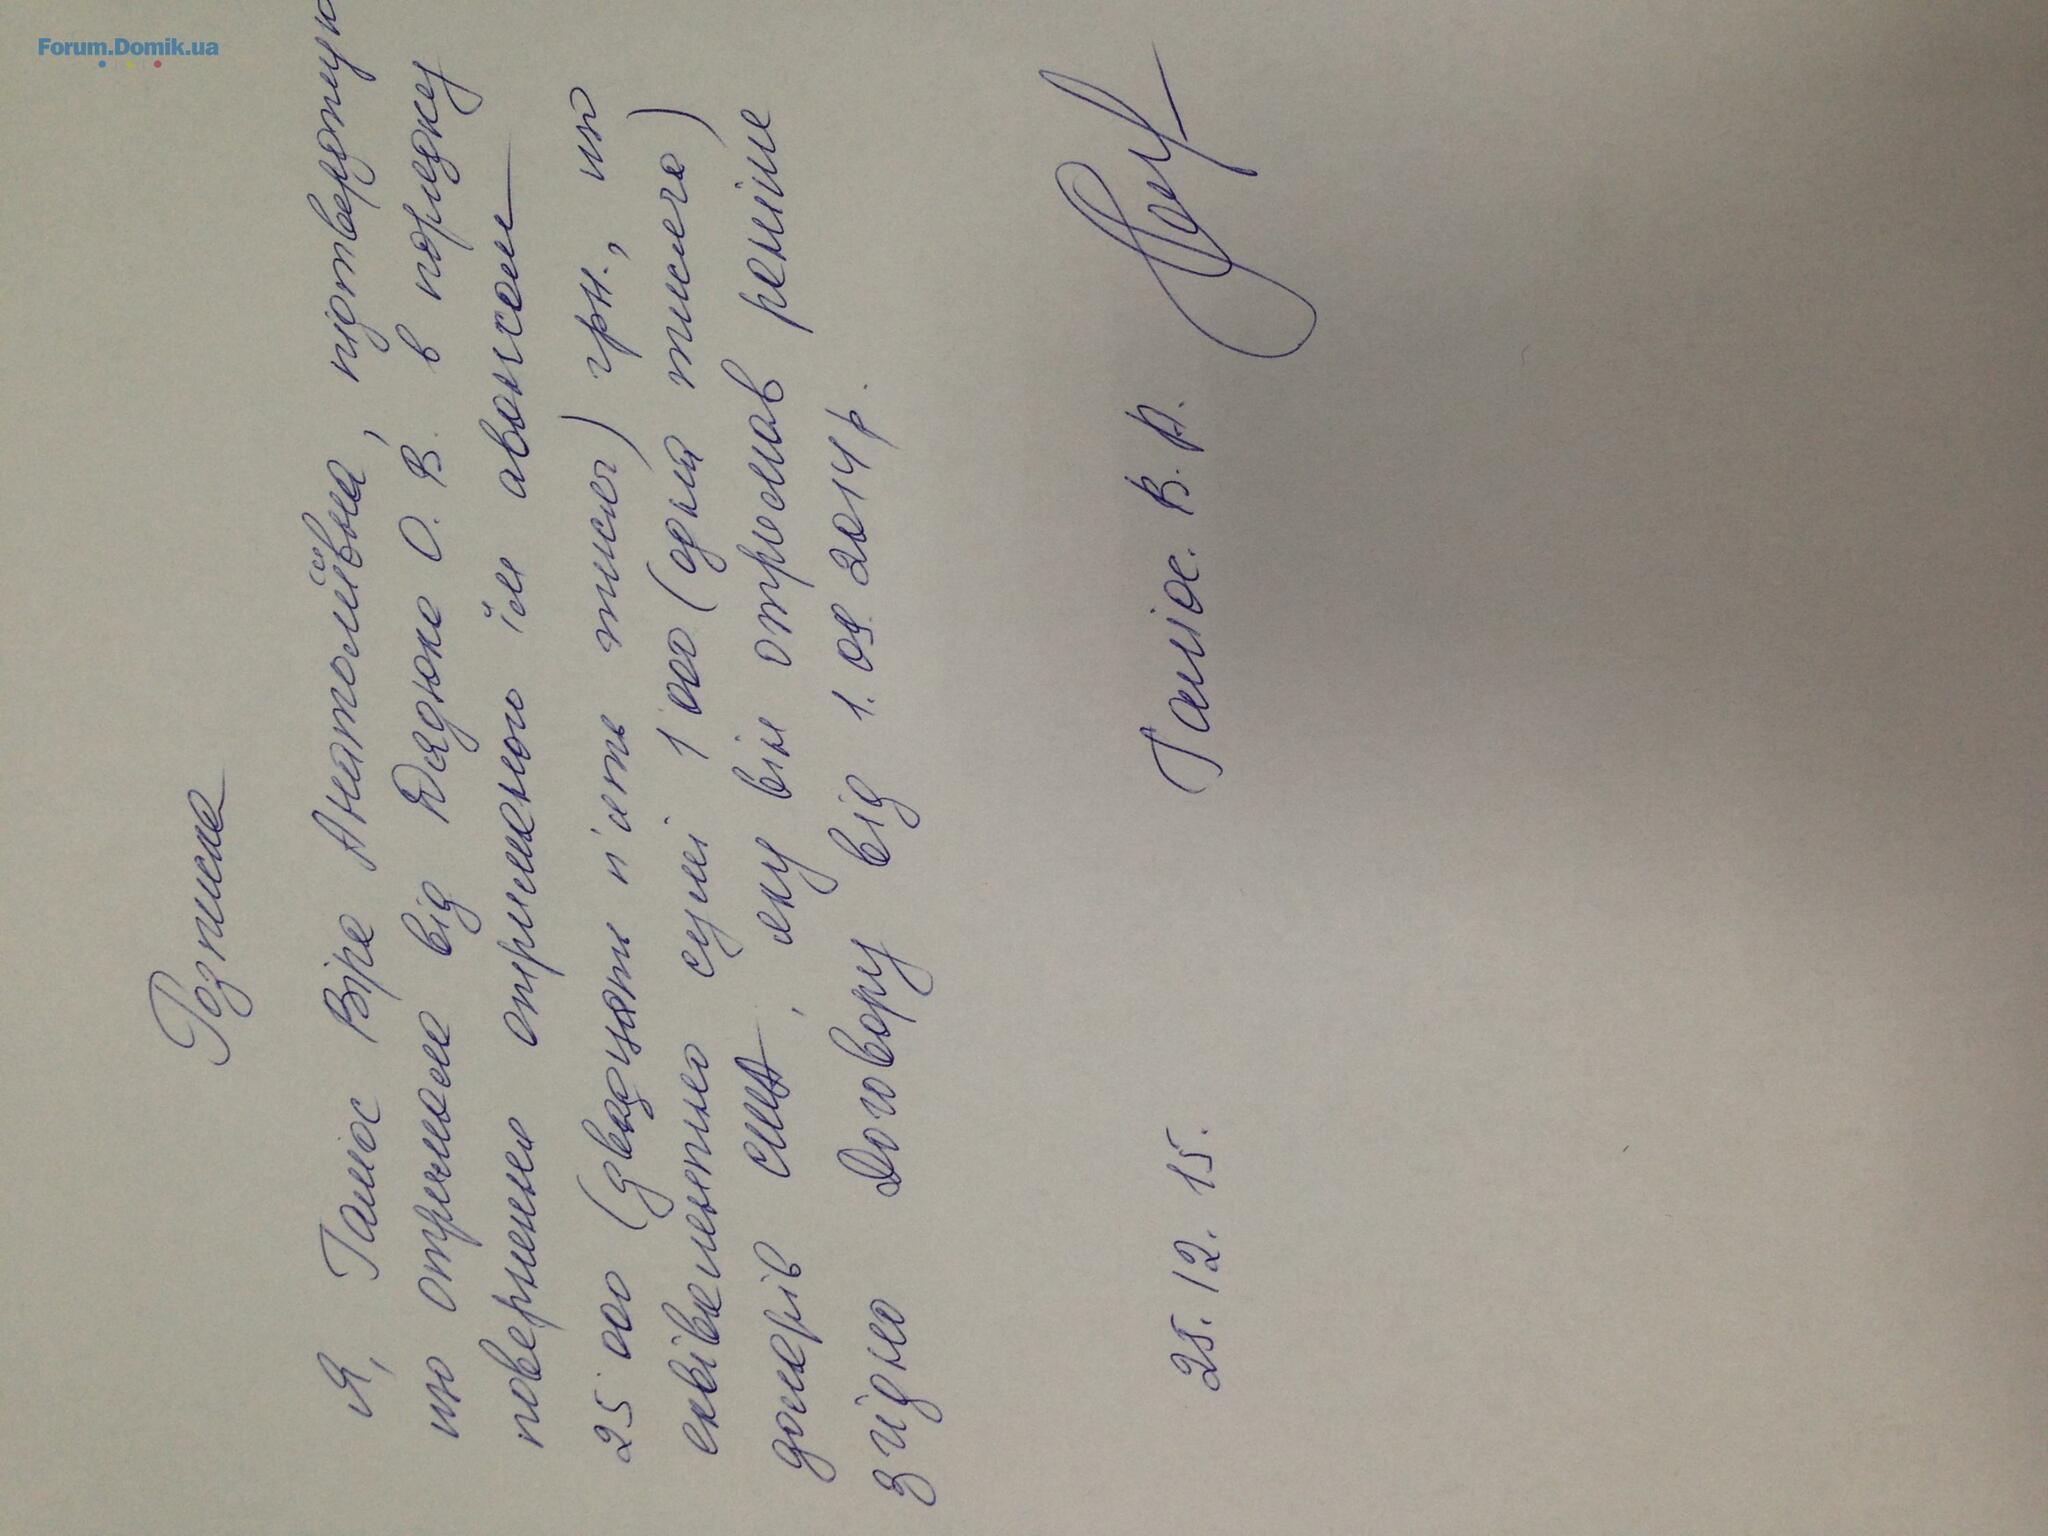 Forum.Domik.ua
Розписка
Я, Галюс Віра Анатоліївна, підтверджую
що отримала від Дяднюка О. В. в порядку
повернення отриманого їм авансом
25 000 (двадцять п'ять тисяч) грн., що
еквівалентно сумі 1 000 (одна тисяча)
доларів США, яку він отримав раніше
згідно Договору від 1.09.2014р.
25.12.15. В.А.